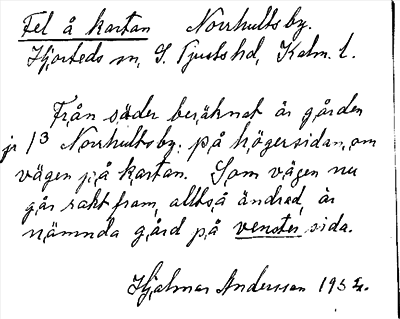 Fel å kartan Norrhults by.
Hjorteds sn, S. Tjusts hd, Kalm. l.
Från söder beräknat är gården
13 Norrhults by. på höger sida, om
vägen på kartan. Som vägen nu
går rakt fram, alltså ändrad, är
nämnda gård på venster sida.
Hjalmar Andersson